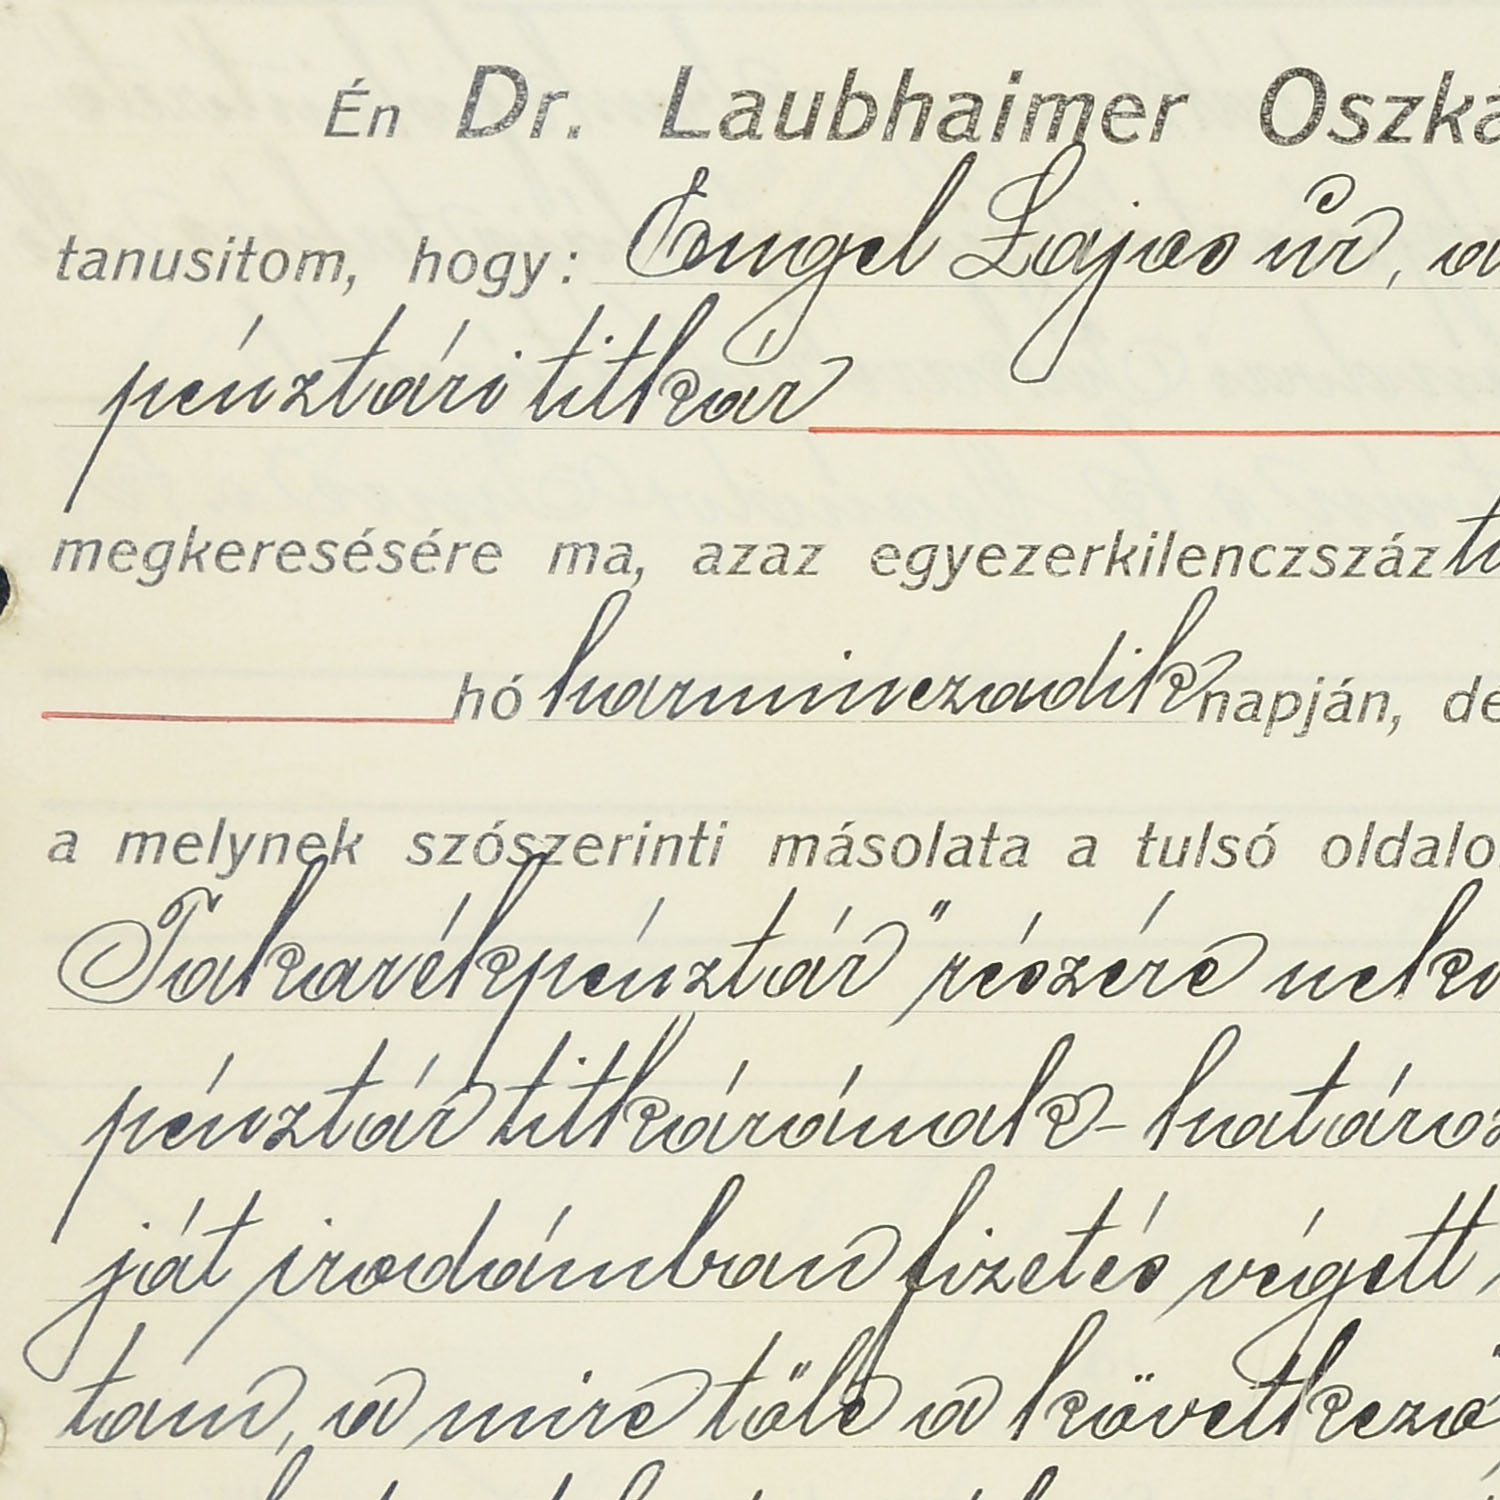 Én Dr. Laubhaimer Oszká
tanusitom, hogy: Engel Lajos úr, a
pénztári titkár
megkeresésére ma, azaz egyezerkilenczszáz ti
hó harminczadik napján, de
a melynek szószerinti másolata a tulsó oldalo
Takarékpénztár" részére
pénztár titkárának - határoz
ját irodámban fizetés végett
tam, a mire tőle a következő